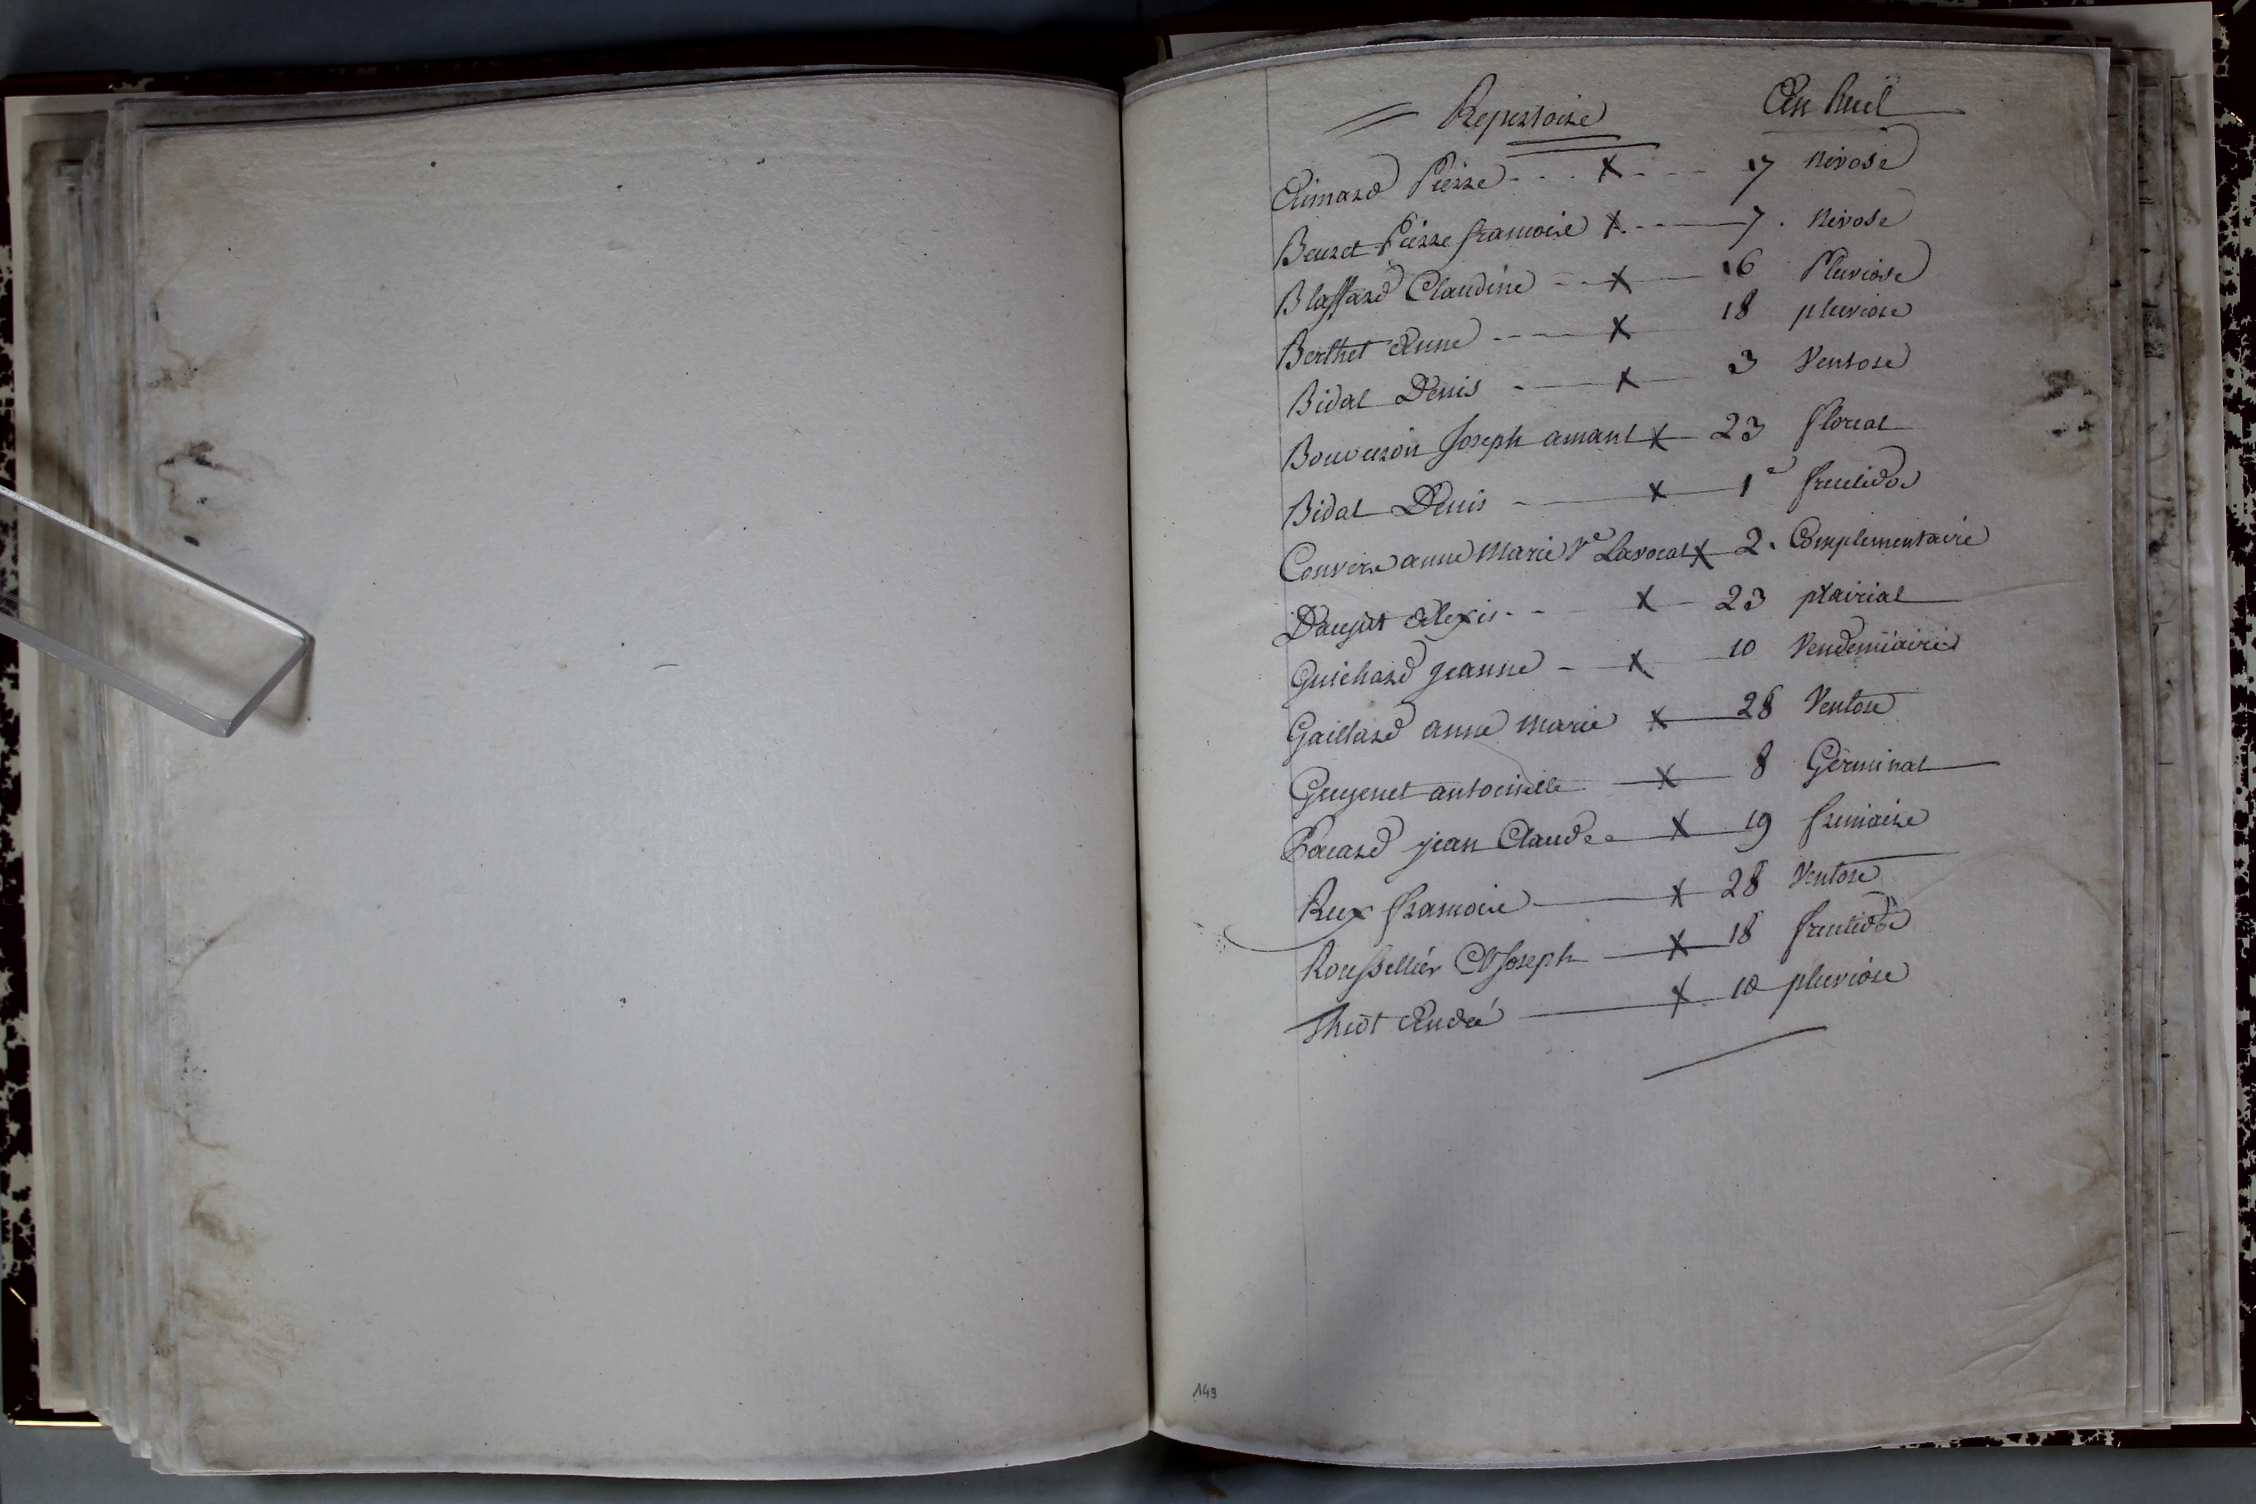 Repertoire An huit
Aimard Pierre - - - X - - - 17 nivose
Beuret Pierre francoise X - - - 7 . Nivose
Blassard Claudine - - X - 16 Pluviose
Berthet Anne - - - X 18 pluviose
Bidal Denis - - X - 3 Ventose
Bouveron Joseph amant X - 23 floreal
Bidal Denis - X - 1e fructidor
Convers anne Marie Ve Lavocat X - 2 . Complementaire
Alexis - - X - 23 prairial
Guichard jeanne - - X 10 Vendemiaire
Gaillard anne Marie X - 28 Ventose
Guyenet antoinette - X - 8 Germinal
jean Claude - X - 19 frimaire
Rux francoise - X - 28 Ventose
Roussellier Cl Joseph - X - 18 fructidor
Thiot André - X - 18 pluviose
149